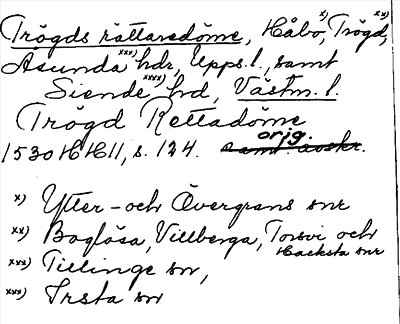 Trögds rättaredöme, Håbo, x) Trögd, xx)
Åsunda xxx) hdr, Upps. l., samt
Siende xxxx) hd, Västm. l.
Trögd Rettadöme
1530 HH 11, s. 124. samt. avskr. orig.
x) Ytter- och Övergrans snr
xx) Boglösa, Villberga, Torsvi och
Hacksta snr
xxx) Tillinge sn,
xxx) Irsta sn